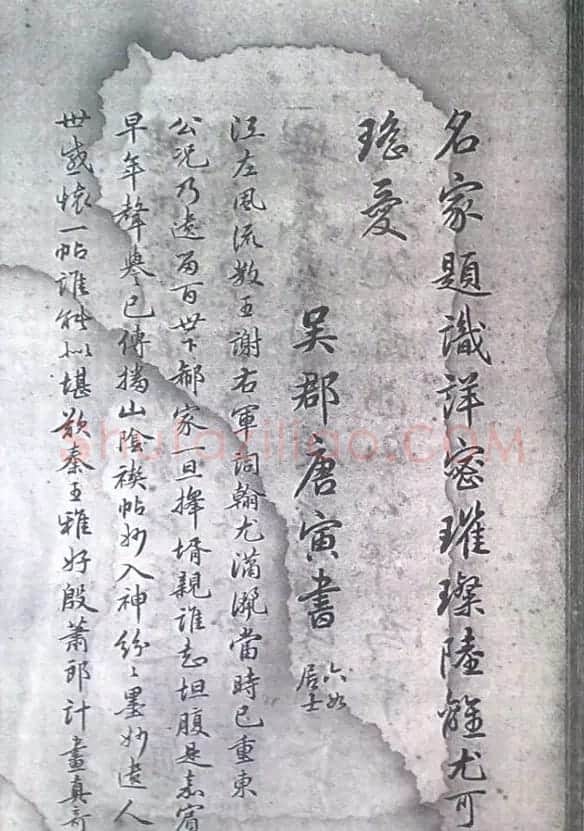 名家題識詳密璀璨陸離尤可
珤愛
吳郡唐寅書
六如
居士
江左風流數王謝右軍詞翰尤瀟灑當時已重東
公况乃遠留百世下郗家一旦擇壻親誰知坦腹是嘉賓
早年聲譽已傳播山陰禊帖妙入神紛〻墨妙遺人
世感懷一帖誰能似堪歎秦王雅好殷蕭郎計畫真奇
shufaziliao.com